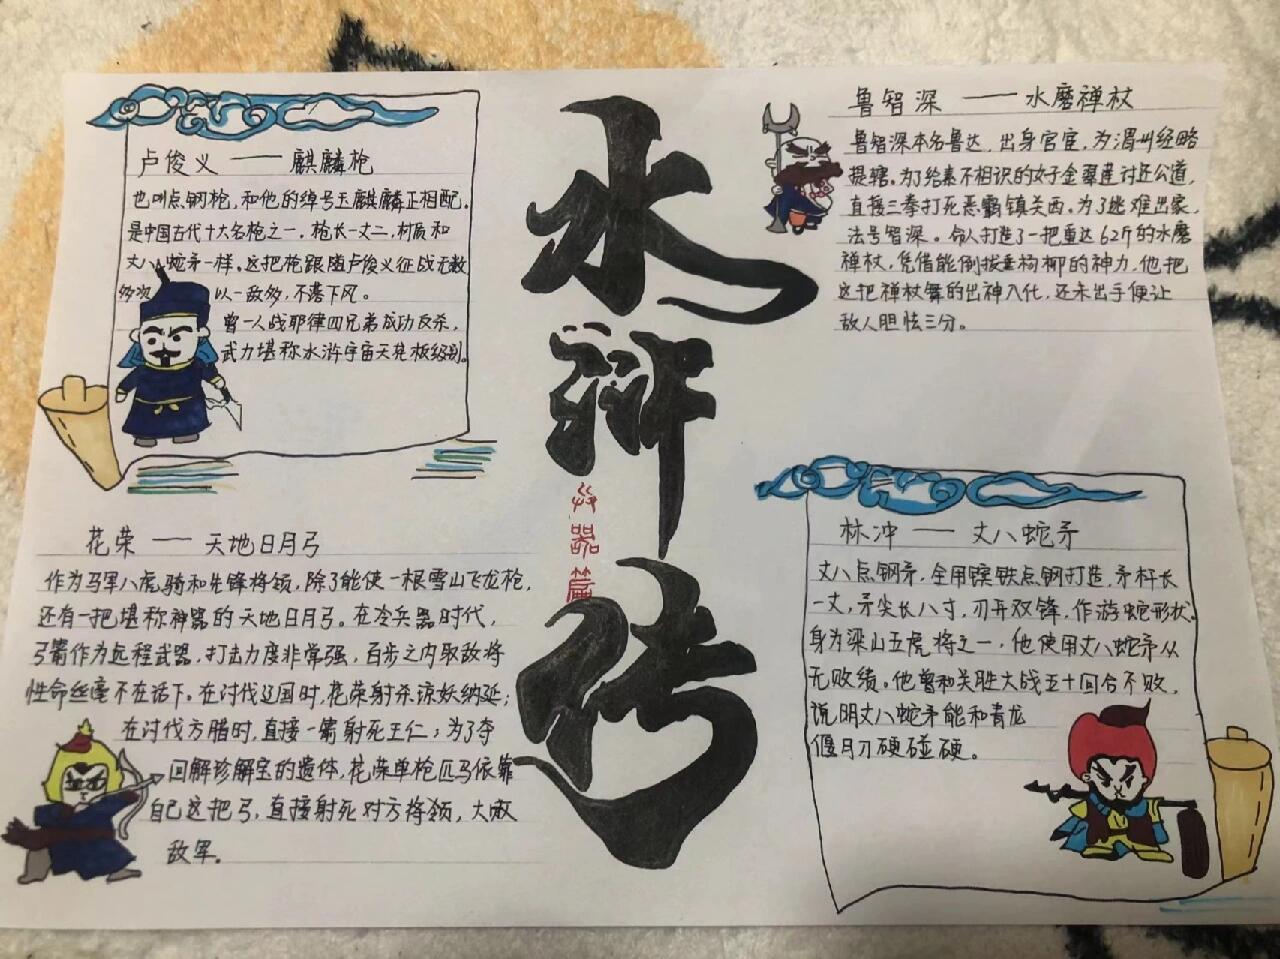 卢俊义——麒麟枪
也叫点钢枪，和他的绰号玉麒麟正相配。
是中国古代十大名枪之一，枪长一丈二，材质和
丈八蛇矛一样。这把枪跟随卢俊义征战无数
多次 以一敌多，不落下风。
曾一人战耶律四兄弟成功反杀，
武力堪称水浒宇宙天花板级别。
花荣——天地日月弓
作为马军八虎骑和先锋将领，除了能使一根雪山飞龙枪，
还有一把堪称神器的天地日月弓。在冷兵器时代，
弓箭作为远程武器，打击力度非常强，百步之内取敌将
性命丝毫不在话下。在讨伐辽国时，花荣射杀谅妖纳延；
在讨伐方腊时，直接一箭射死王仁；为了夺
回解珍解宝的遗体，花荣单枪匹马依靠
自己这把弓，直接射死对方将领，大败
敌军。
水浒传
兵器篇
鲁智深——水磨禅杖
鲁智深本名鲁达，出身官宦，为渭州经略
提辖。为了给素不相识的女子金翠莲讨还公道，
直接三拳打死恶霸镇关西。为了逃难出家，
法号智深。命人打造了一把重达62斤的水磨
禅杖，凭借能倒拔垂杨柳的神力，他把
这把禅杖舞的出神入化，还未出手便让
敌人胆怯三分。
林冲——丈八蛇矛
丈八点钢矛，全用镔铁点钢打造，矛杆长
一丈，矛尖长八寸，刃开双锋，作游蛇形状。
身为梁山五虎将之一，他使用丈八蛇矛从
无败绩。他曾和关胜大战五十回合不败，
说明丈八蛇矛能和青龙
偃月刀硬碰硬。